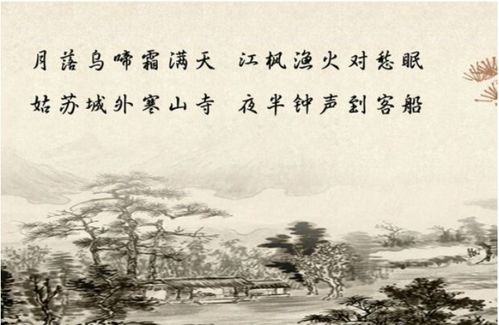 月落乌啼霜满天 江枫渔火对愁眠
姑苏城外寒山寺 夜半钟声到客船